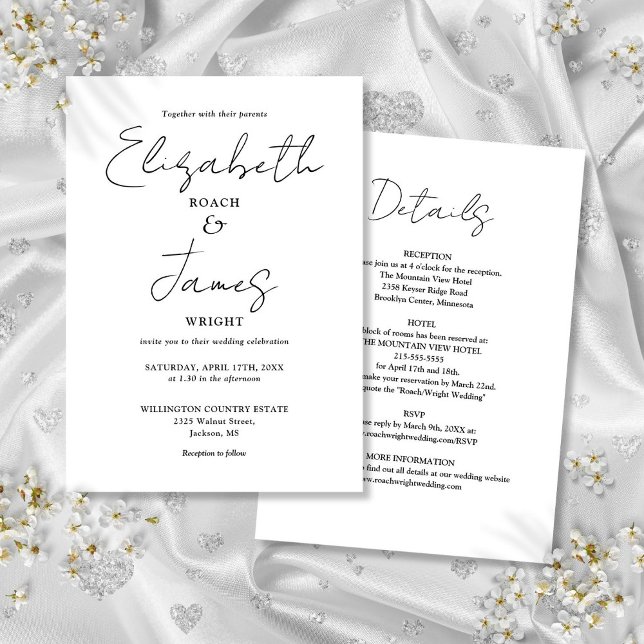 Together with their parents
Elizabeth
ROACH
&
James
WRIGHT
invite you to their wedding celebration
SATURDAY, APRIL 17TH, 20XX
at 1.30 in the afternoon
WILLINGTON COUNTRY ESTATE
2325 Walnut Street,
Jackson, MS
Reception to follow
Details
RECEPTION
join us at 4 o'clock for the reception.
The Mountain View Hotel
2358 Keyser Ridge Road
Brooklyn Center, Minnesota
HOTEL
block of rooms has been reserved at:
THE MOUNTAIN VIEW HOTEL
215-555-5555
for April 17th and 18th.
make your reservation by March 22nd.
quote the "Roach/Wright Wedding"
RSVP
reply by March 9th, 20XX at:
www.roachwrightwedding.com/RSVP
MORE INFORMATION
find out all details at our wedding website
www.roachwrightwedding.com